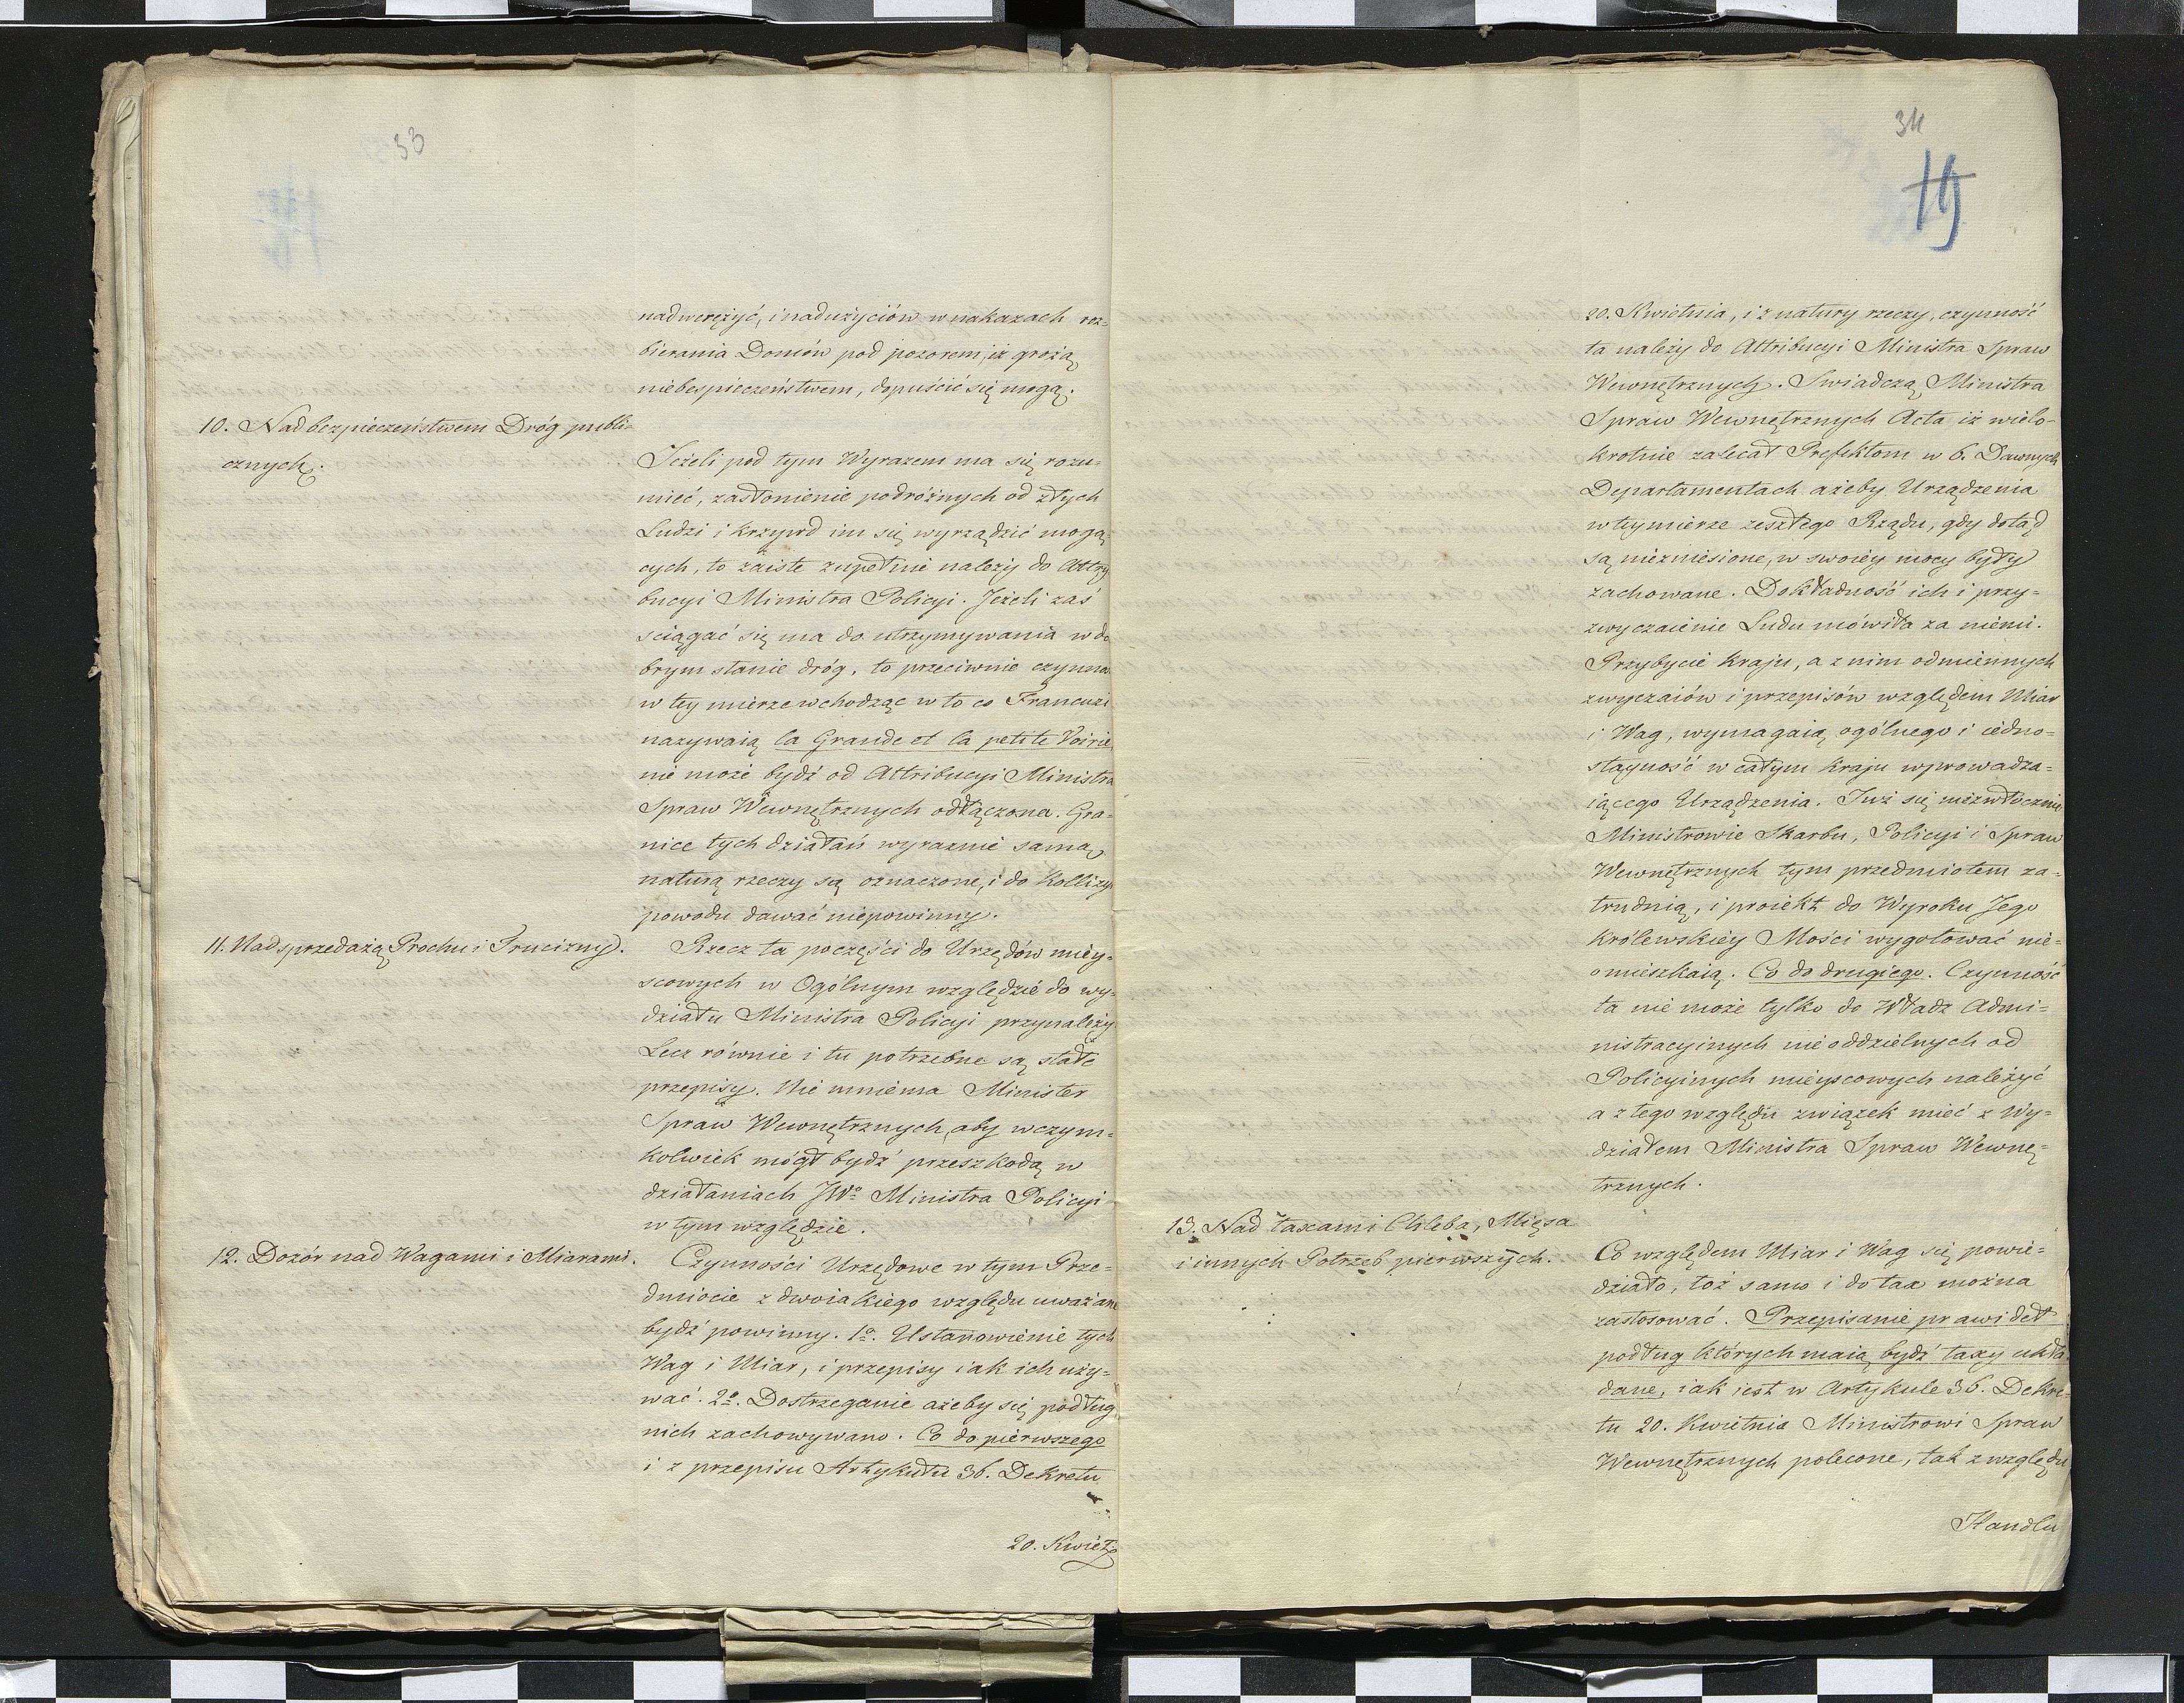 33
nadwerężyć, i nadużyciów w nakazach roz-
bierania Domów pod pozorem, iż grożą
niebespieczeństwem, dopuścić się mogą.
10. Nad bezpieczeństwem Dróg publi-
cznych.
Jeżeli pod tym Wyrazem ma się rozu-
mieć, zasłonienie podróżnych od złych
Ludzi i krzywd im się wyrządzić mogą-
cych, to zaiste zupełnie należy do Attry
bucyi Ministra Policyi. Jeżeli zaś
ściągać się ma do utrzymywania w do
brym stanie dróg, to przeciwnie czynno
w tey mierze wchodząc w to co Francuzi
nazywaią la Grande et la petite Voirie
nie może bydź od Attribucyi Ministra
Spraw Wewnętrznych odłączona. Gra-
nice tych działań wyraznie samą
naturą rzeczy są oznaczone, i do Kollizyi
powodu dawać niepowinny.
11. Nad sprzedażą Prochu i Trucizny.
Rzecz ta poczęści do Urzędów miey-
scowych w Ogólnym względzie do wy-
działu Ministra Policyi przynależy.
Lecz równie i tu potrzebne są stałe
przepisy. Nie mniema Minister
Spraw Wewnętrznych, aby w czym-
kolwiek mógł bydź przeszkodą w
działaniach JWo Ministra Policyi
w tym względzie.
12. Dozór nad Wagami i Miarami.
Czynności Urzędowe w tym Prze-
dmiocie z dwoiakiego względu uważane
bydź powinny. 1o. Ustanowienie tych
Wag i Miar, i przepisy iak ich uży-
wać. 2o. Dostrzeganie ażeby się podług
nich zachowywano. Co do pierwszego
i z przepisu Artykułu 36. Dekretu
20. Kwiet
34
19
20. Kwietnia, i z natury rzeczy, czynność
ta należy do Attribucyi Ministra Spraw
Wewnętrznych. Swiadczą Ministra
Spraw Wewnętrznych Acta iż wielo-
krotnie zalecał Prefektom w 6. Dawnych
Departamentach ażeby Urządzenia
w tey mierze zeszłego Rządu, gdy dotąd
są niezniesione, w swoiey mocy były
zachowane. Dokładność ich i przy-
zwyczaienie Ludu mówiła za niemi.
Przybycie kraju, a z nim odmiennych
zwyczaiów i przepisów względem Miar
i Wag, wymagaią ogólnego i iedno-
stayność w całym kraju wprowadza-
iącego Urządzenia. Już się niezwłocznie
Ministrowie Skarbu, Policyi i Spraw
Wewnętrznych tym przedmiotem za-
trudnią, i proiekt do Wyroku Jego
Królewskiey Mości wygotować nie-
omieszkaią. Co do drugiego. Czynność
ta nie może tylko do Władz Admi-
nistracyinych nieoddzielnych od
Policyinych mieyscowych należyć
a z tego względu związek mieć z Wy-
działem Ministra Spraw Wewnę-
trznych.
13. Nad taxami Chleba, Mięsa
i innych Potrzeb pierwszych.
Co względem Miar i Wag się powie-
działo, toż samo i do tax można
zastosować. Przepisanie prawideł
podług których maią bydź taxy ukła-
dane, iak iest w Artykule 36. Dekre-
tu 20. Kwietnia Ministrowi Spraw
Wewnętrznych polecone, tak z względu
Handlu